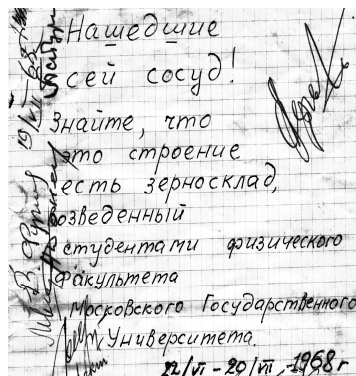 Нашедшие
сей сосуд!
Знайте, что
это строение
есть зерносклад,
возведенный
студентами физического
факультета
Московского Государственного
Университета.
22/VI - 20/VII, -1968 г